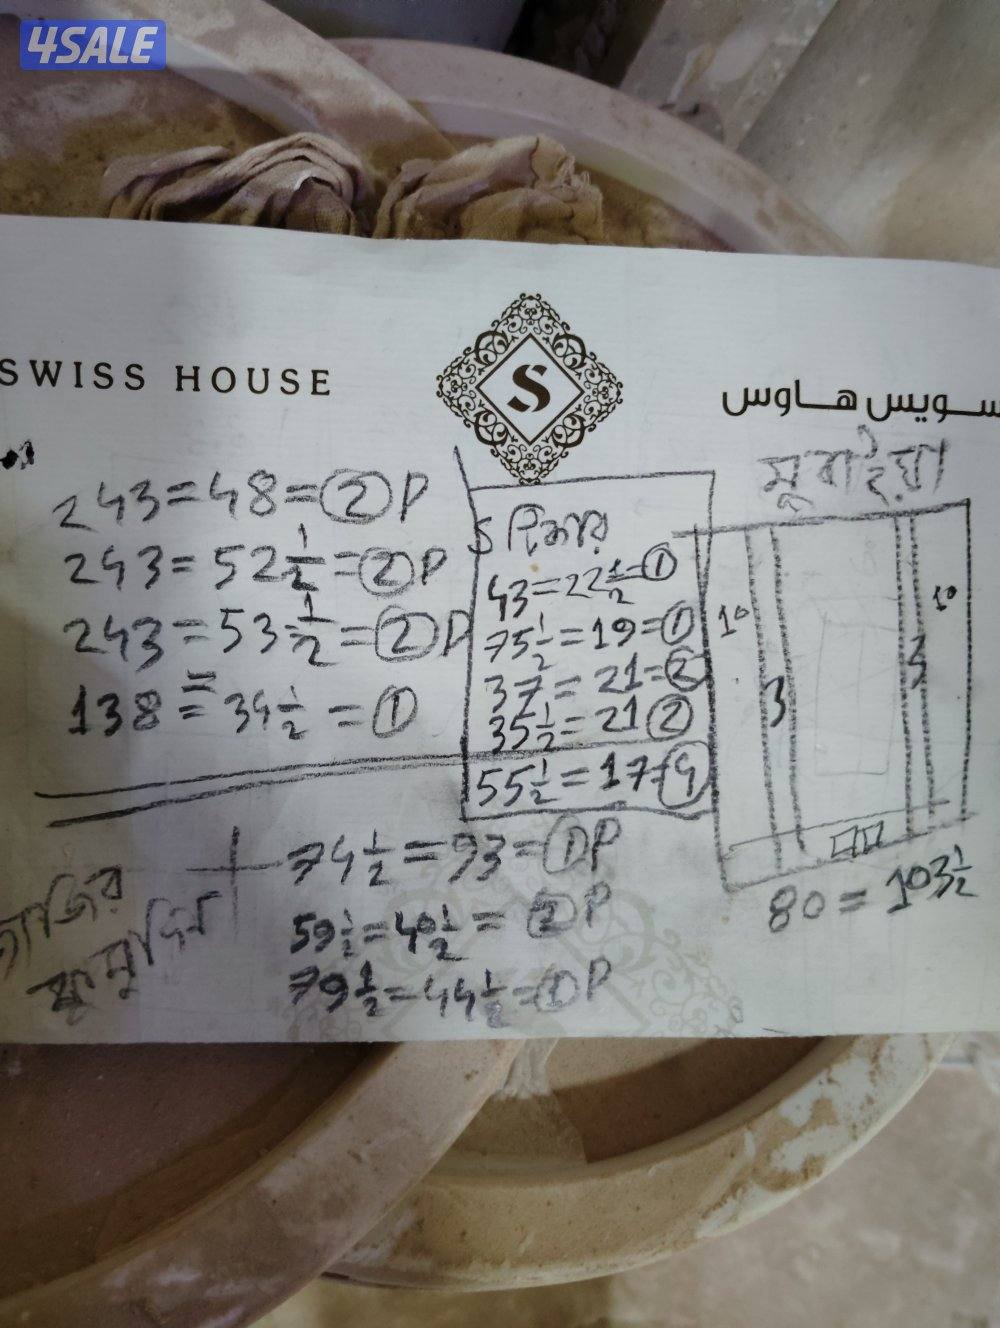 4SALE
SWISS HOUSE
S
سويس هاوس
243=48=②P
243=52½=②P
243=53½=②P
138=34½=①
43=22½=①
75½=19=①
37=21=②
35½=21②
55½=17=④
মুবাইয়া
10
3
3
10
80=103½
74½=93=①P
59½=40½=②P
79½=44½=①P